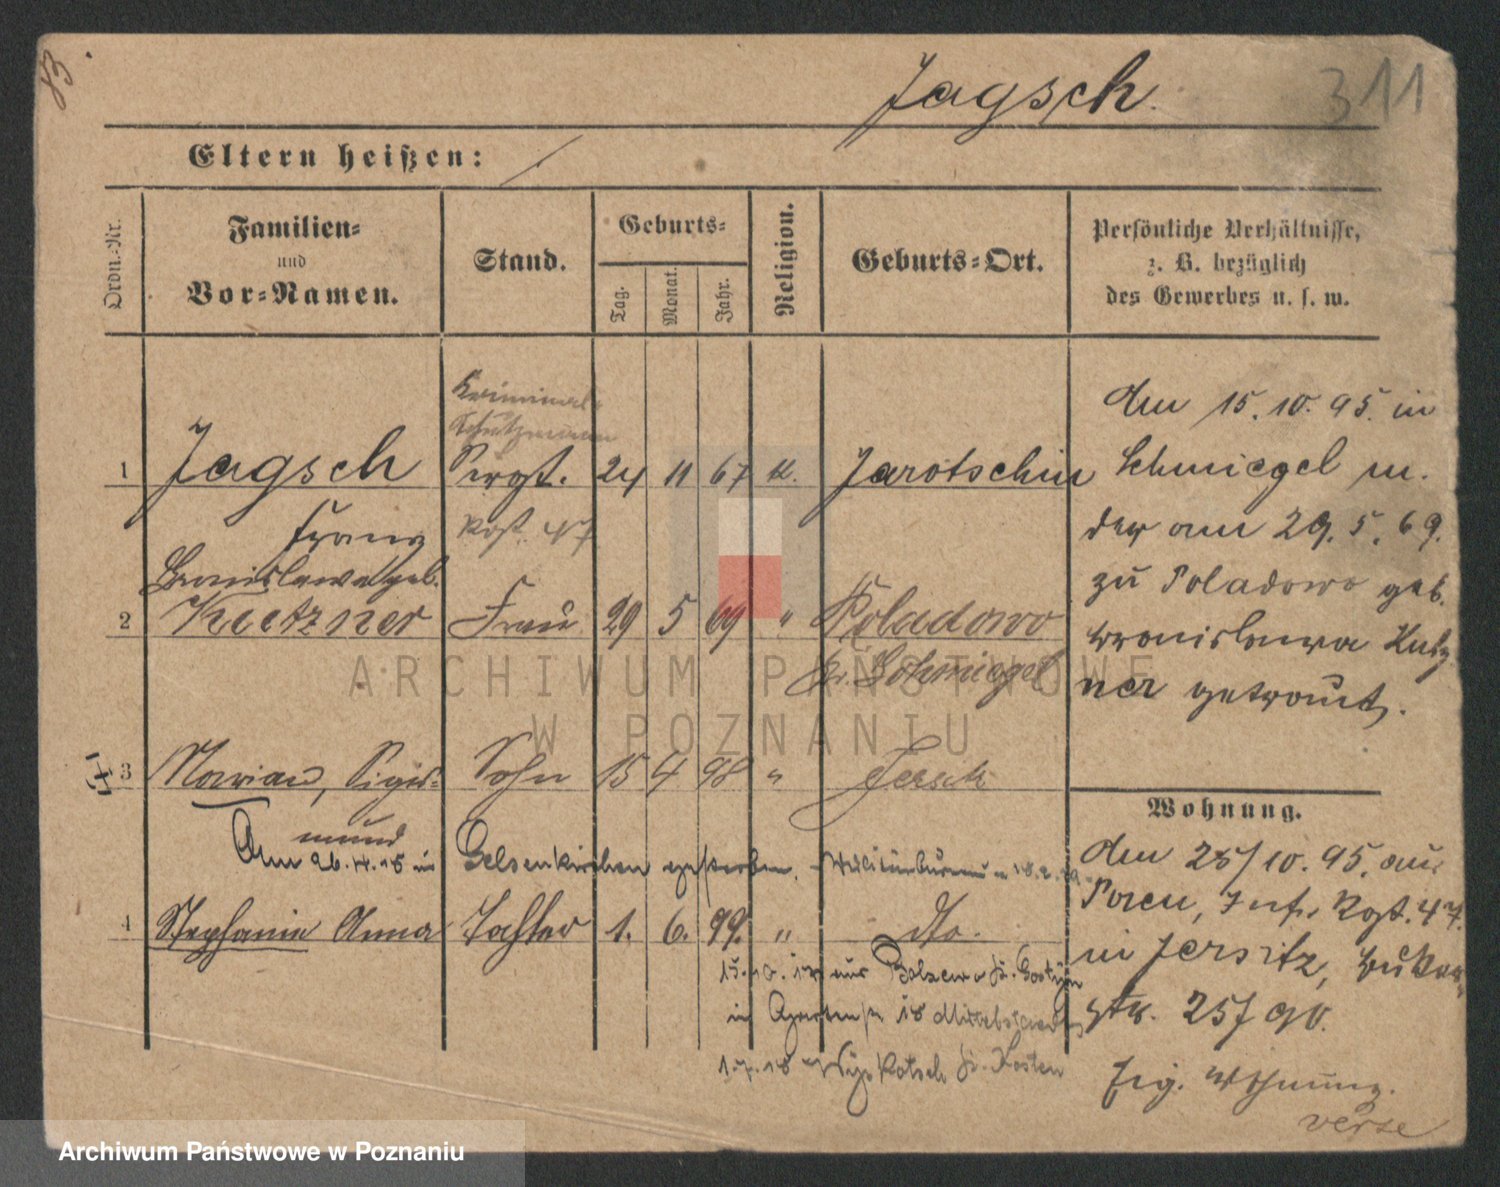 83.
Jagsch.
311
Eltern heißen: /
Ordn.-Nr.
Familien-
und
Vor-Namen.
Stand.
Geburts-
Tag.
Monat.
Jahr.
Religion.
Geburts-Ort.
Persönliche Verhältnisse,
z. B. bezüglich
des Gewerbes u. s. w.
Kriminal-
Schutzmann
1 Jagsch Sergt. 24 11 67 k. Jarotschin
Franz Rgt. 47
Bronislawa geb.
2 Kutzner Frau 29 5 69 " Poladowo
Kr. Schmiegel
3 Marian, Sigis- Sohn 15 4 98 " Jersitz
mund
Am 26.4.18 in Gelsenkirchen gestorben.
4 Stephanie Anna Tochter 1. 6. 99. " dto.
15.10.17 aus
in 18
1.7.18 Kr. Kosten
Am 15.10.95. in
Schmiegel m.
der am 29.5.69.
zu Poladowo geb.
Bronislawa Kutz-
ner getraut.
Wohnung.
Am 25/10.95. aus
Posen, Inf. Rgt. 47.
in Jersitz,
str. 25/90.
Wohnung.
verse
ARCHIWUM PAŃSTWOWE
W POZNANIU
Archiwum Państwowe w Poznaniu